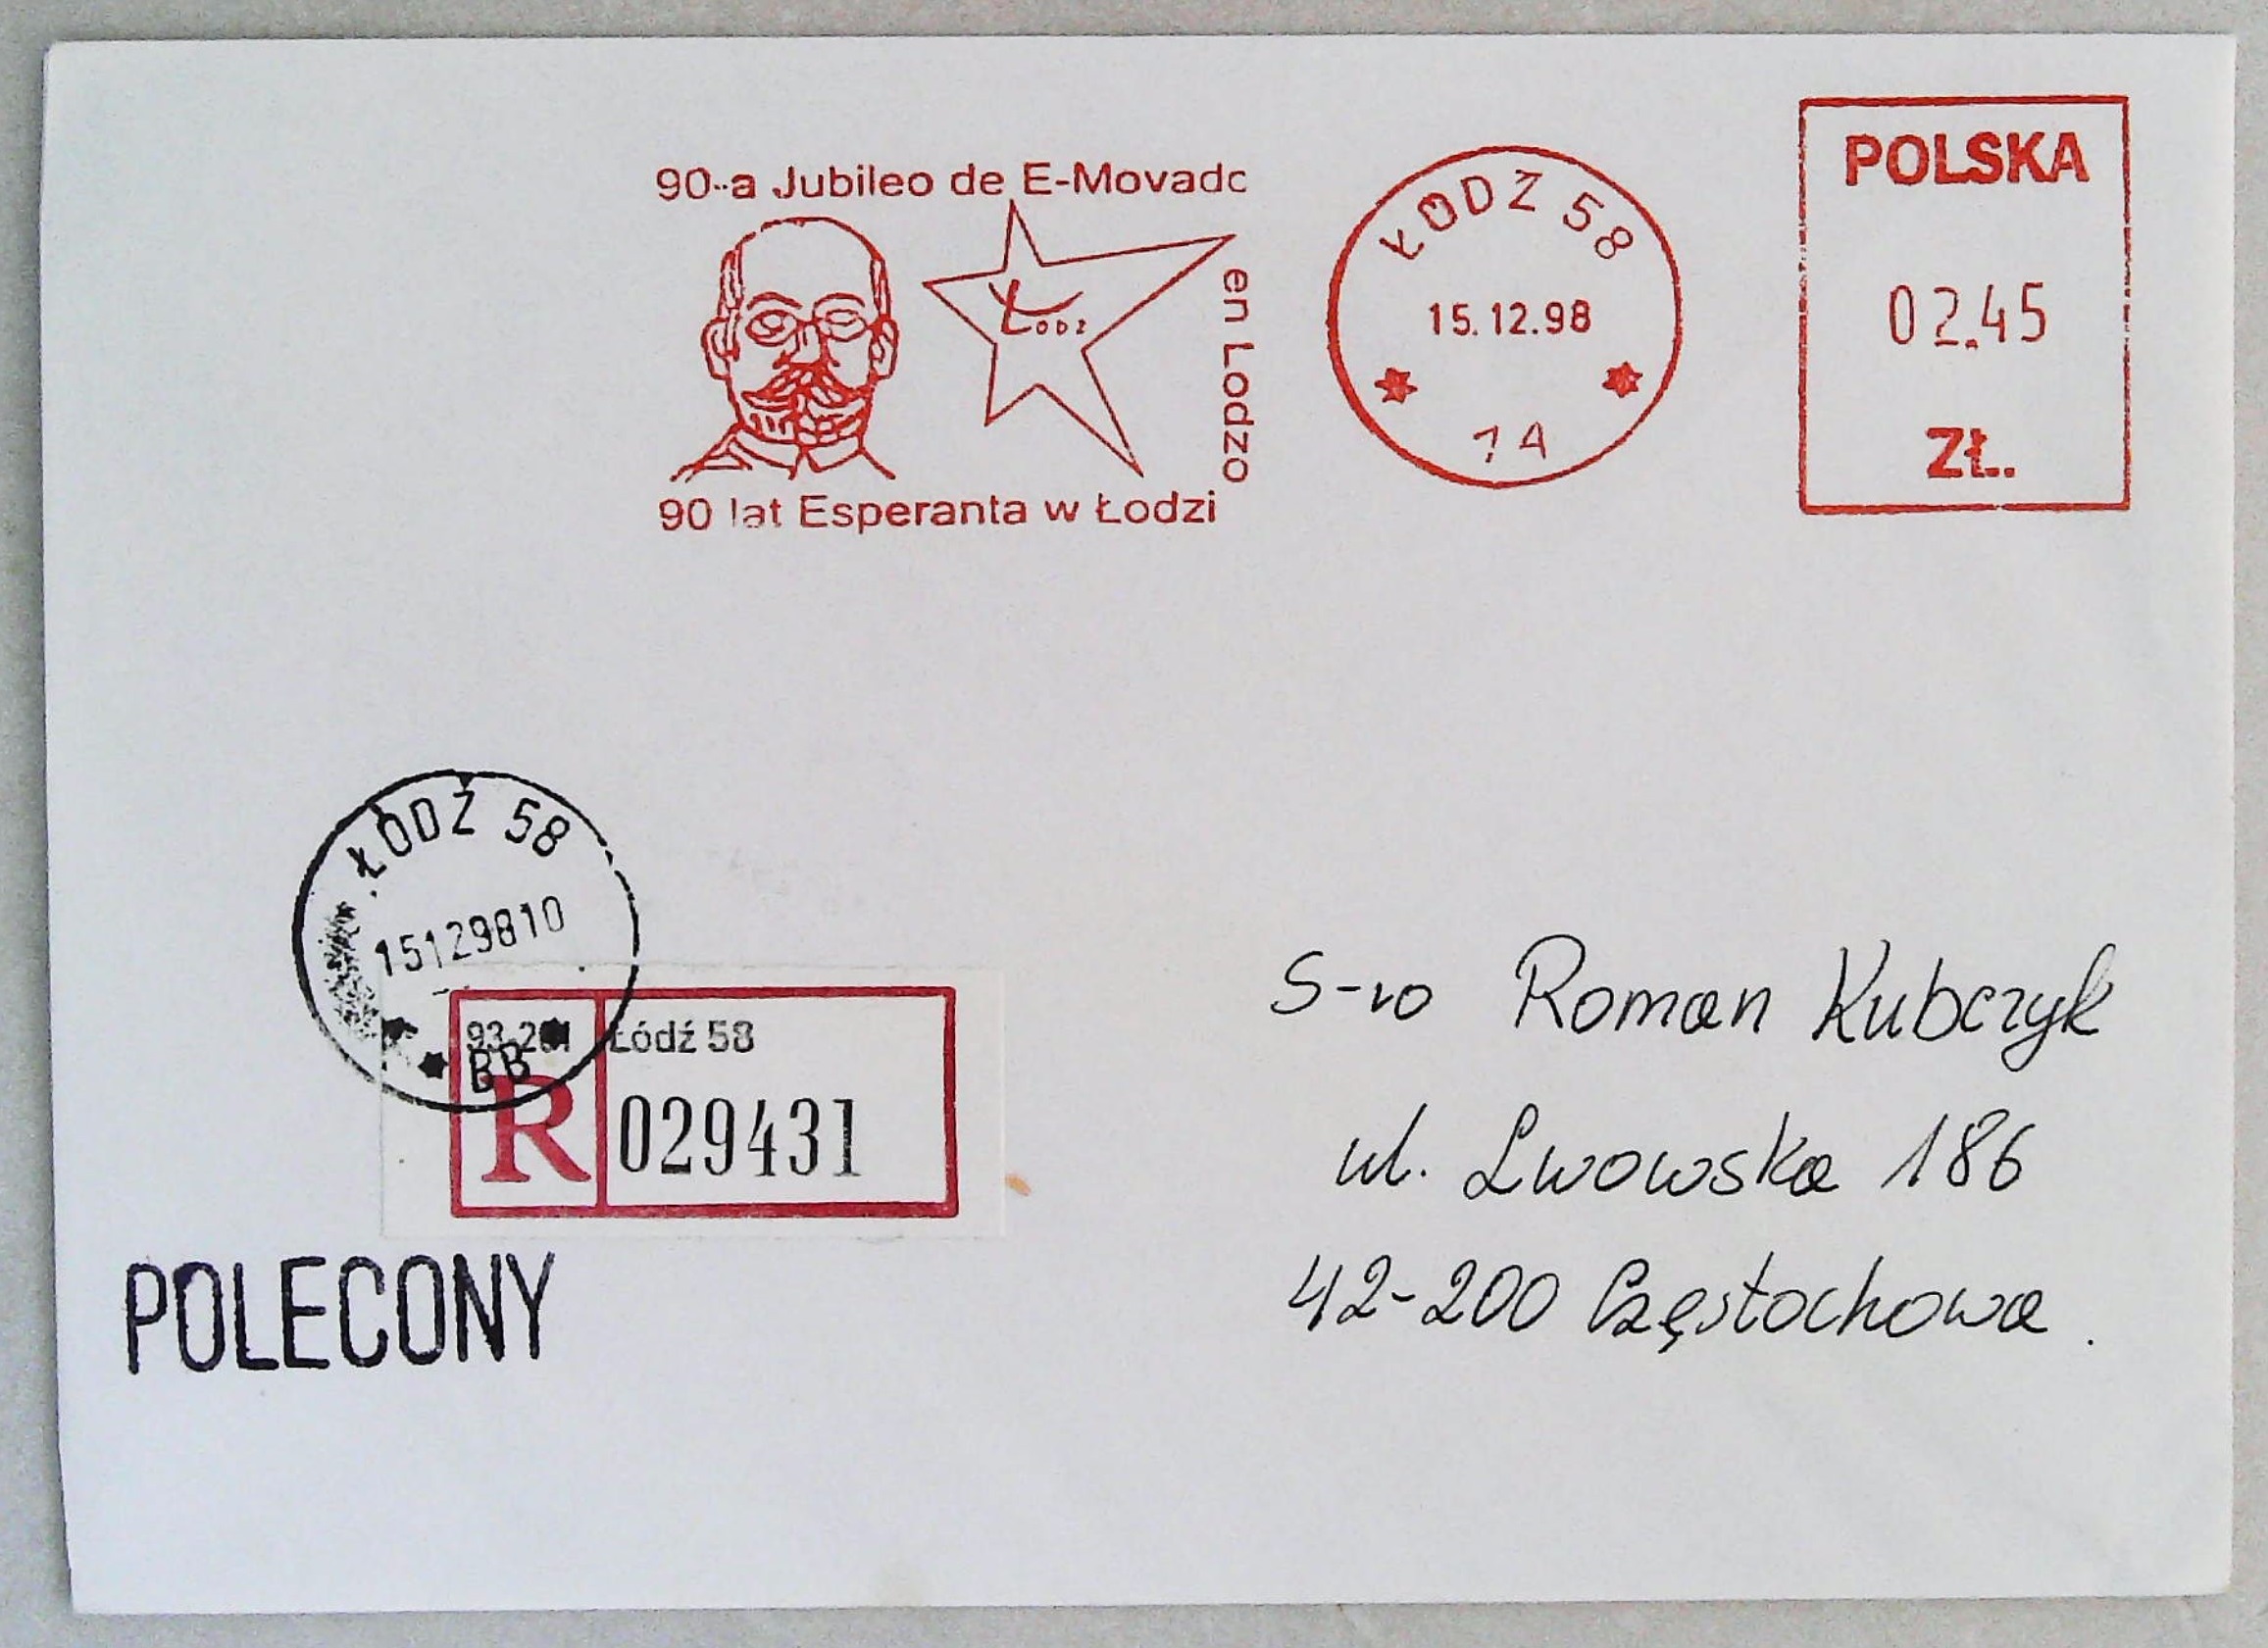 90-a Jubileo de E-Movado
en Lodzo
Łodz
90 lat Esperanta w Łodzi
ŁÓDŹ 58
15.12.98
1A
POLSKA
02.45
ZŁ.
ŁÓDŹ 58
15129810
BB
Łódź 58
R
029431
POLECONY
S-ro Roman Kubczyk
ul. Lwowska 186
42-200 Częstochowa.